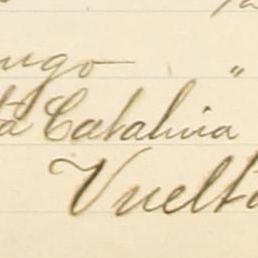 ugo "
ta Catalina "
Vuelta